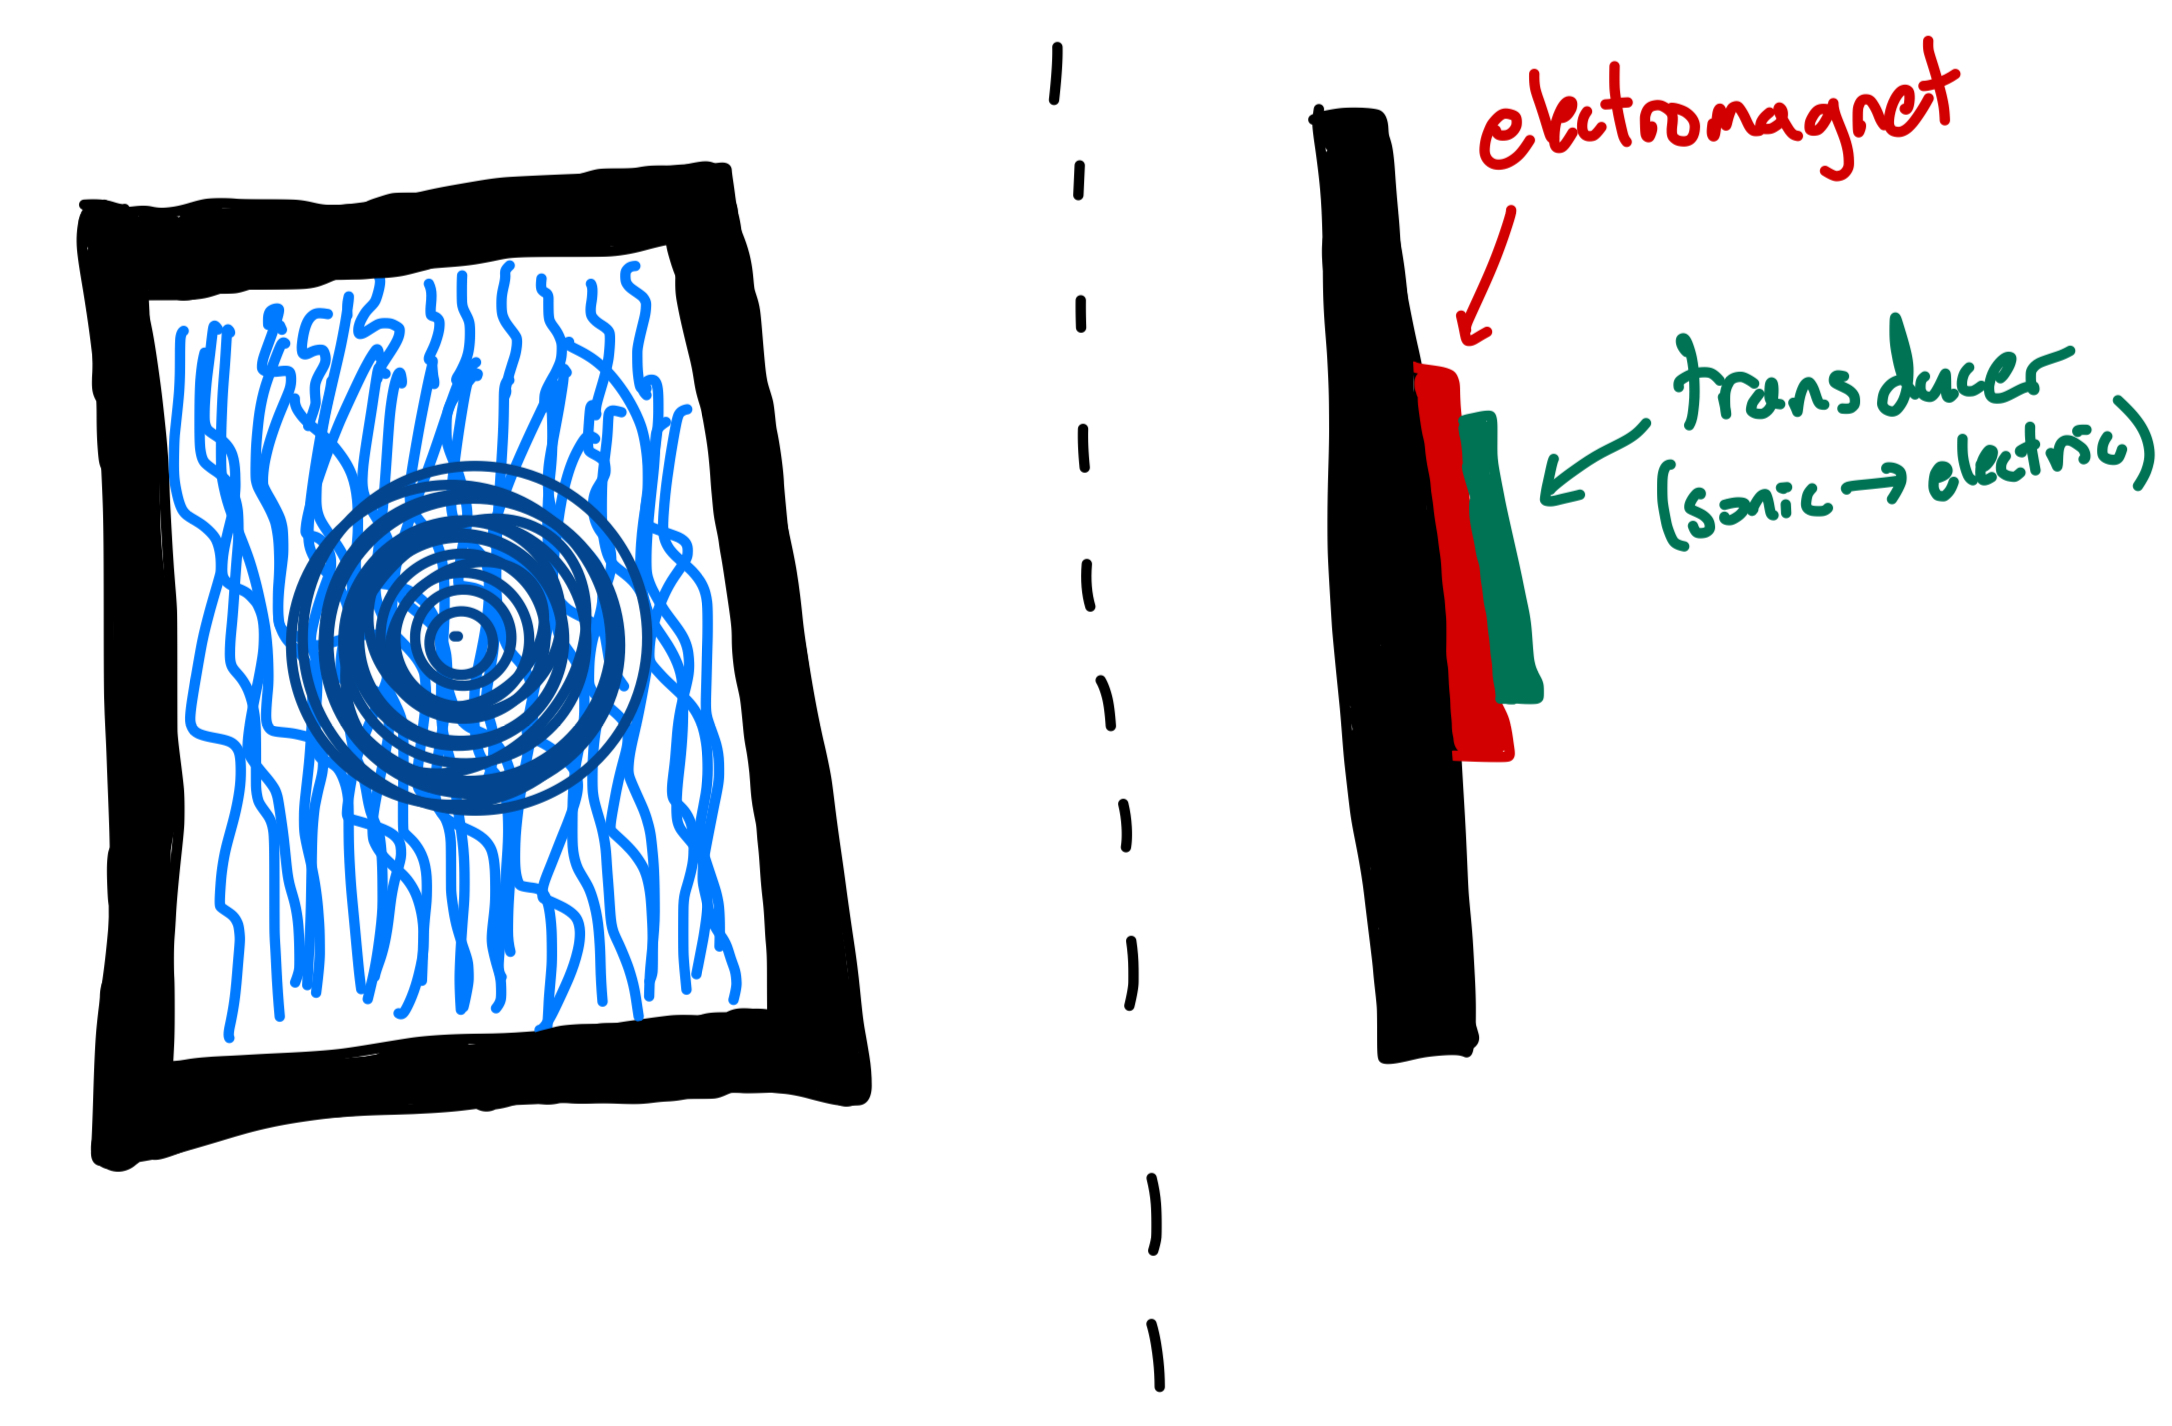 electromagnet
transducer
(sonic → electric)